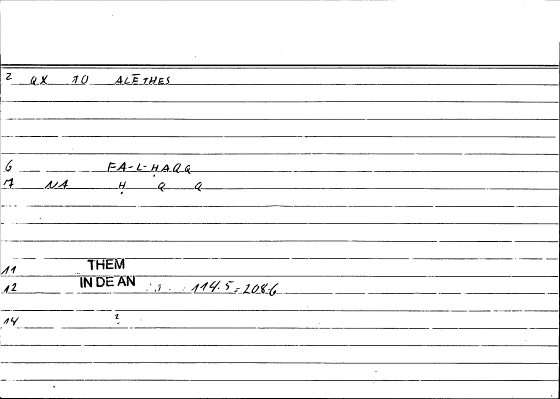 2 QX TO ALĒTHES
6 FA-L-ḤAQQ
7 NA Ḥ Q Q
11 THEM
12 IN DE AN 114.5=208.6
14 2